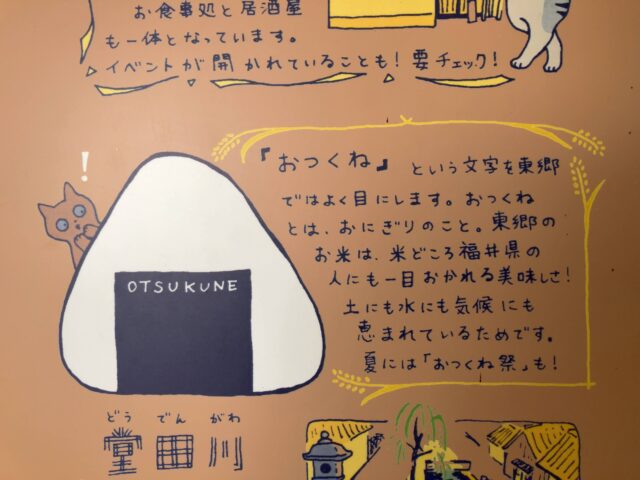 お食事処と居酒屋
も一体となっています。
イベントが開かれていることも!要チェック!
『おつくね』という文字を東郷
ではよく目にします。おつくね
とは、おにぎりのこと。東郷の
お米は、米どころ福井県の
人にも一目おかれる美味しさ!
土にも水にも気候にも
恵まれているためです。
夏には「おつくね祭」も!
!
OTSUKUNE
どう でん がわ
堂田川